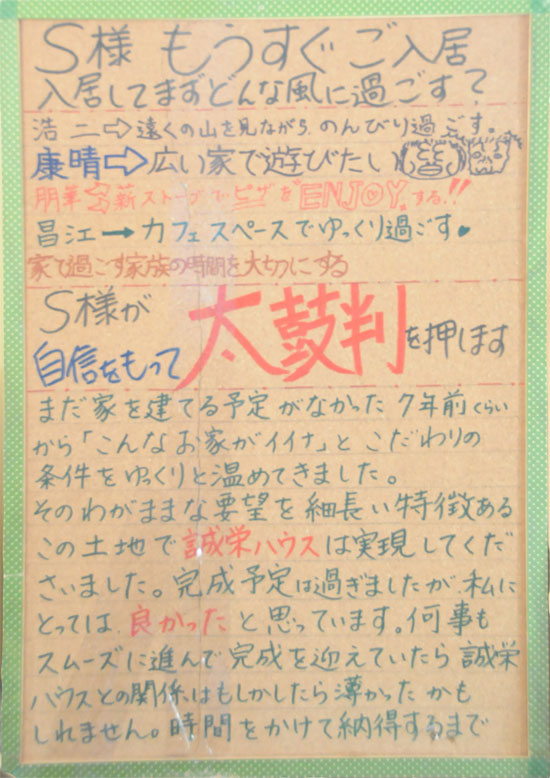 S様 もうすぐご入居
入居してまずどんな風に過ごす?
浩二⇨遠くの山を見ながら のんびり過ごす。
康晴⇨広い家で遊びたい
朋華⇨薪ストーブでピザを"ENJOY"する!!
昌江→カフェスペースでゆっくり過ごす♥
家で過ごす家族の時間を大切にする
S様が
自信をもって 太鼓判を押します
まだ家を建てる予定がなかった 7年前くらい
から「こんなお家がイイナ」と こだわりの
条件をゆっくりと温めてきました。
そのわがままな要望を細長い特徴ある
この土地で誠栄ハウスは実現してくだ
さいました。完成予定は過ぎましたが、私に
とっては 良かったと思っています。何事も
スムーズに進んで完成を迎えていたら 誠栄
ハウスとの関係はもしかしたら薄かったかも
しれません。時間をかけて納得するまで